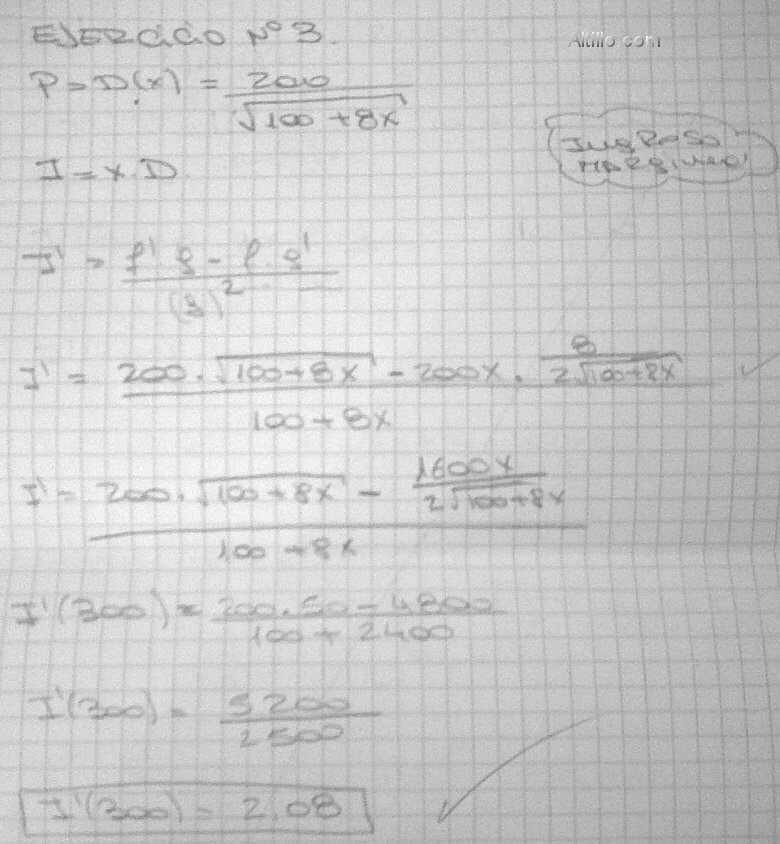 EJERCICIO Nº 3.
Altillo.com
P = D(x) = 200 / √(100 + 8x)
INGRESO
MARGINAL
I = x . D
I' = f' g - f . g' / (g)²
I' = 200 . √(100 + 8x) - 200x . 8 / 2√(100+8x) / 100 + 8x
I' = 200 . √(100 + 8x) - 1600x / 2√(100+8x) / 100 + 8x
I'(300) = 200.50 - 4800 / 100 + 2400
I'(300) = 5200 / 2500
I'(300) = 2,08